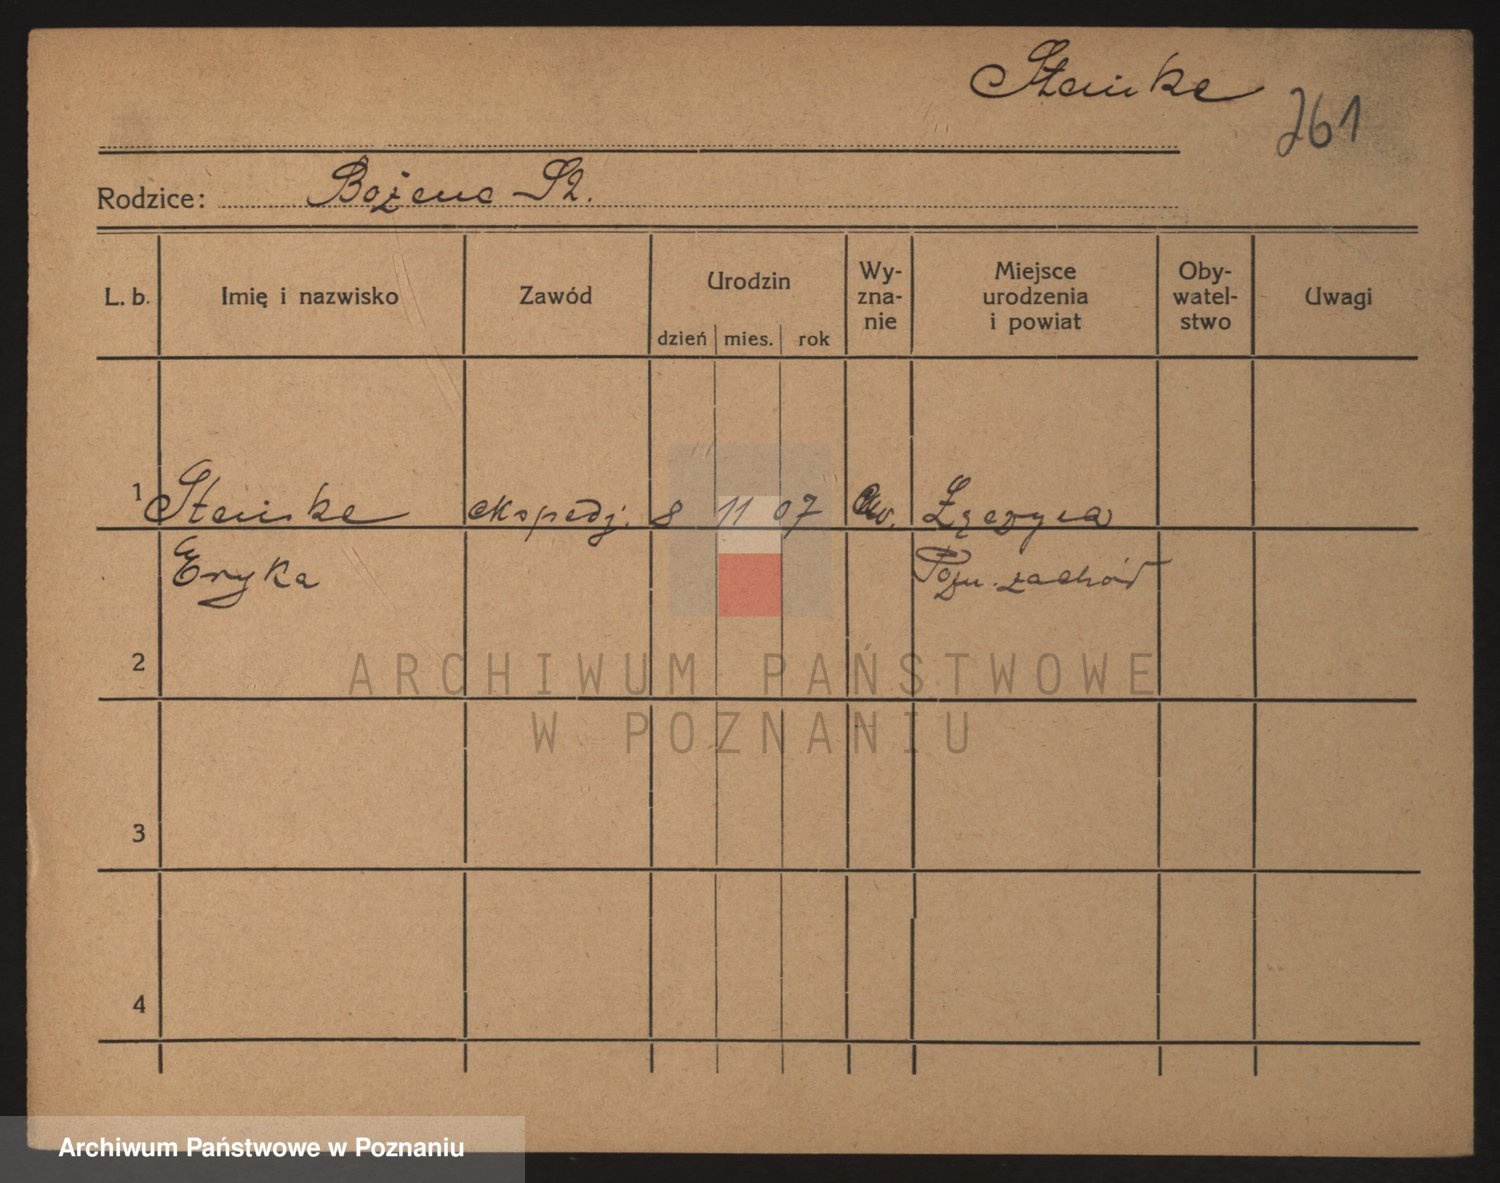 Steinke
261
Rodzice: Bożena Sz.
L. b. Imię i nazwisko Zawód Urodzin Wy-zna-nie Miejsce urodzenia i powiat Oby-watel-stwo Uwagi
dzień mies. rok
1 Steinke ekspedj. 8 11 07 Łęczyca
Eryka Pozn. zachód
2
ARCHIWUM PAŃSTWOWE
W POZNANIU
3
4
Archiwum Państwowe w Poznaniu